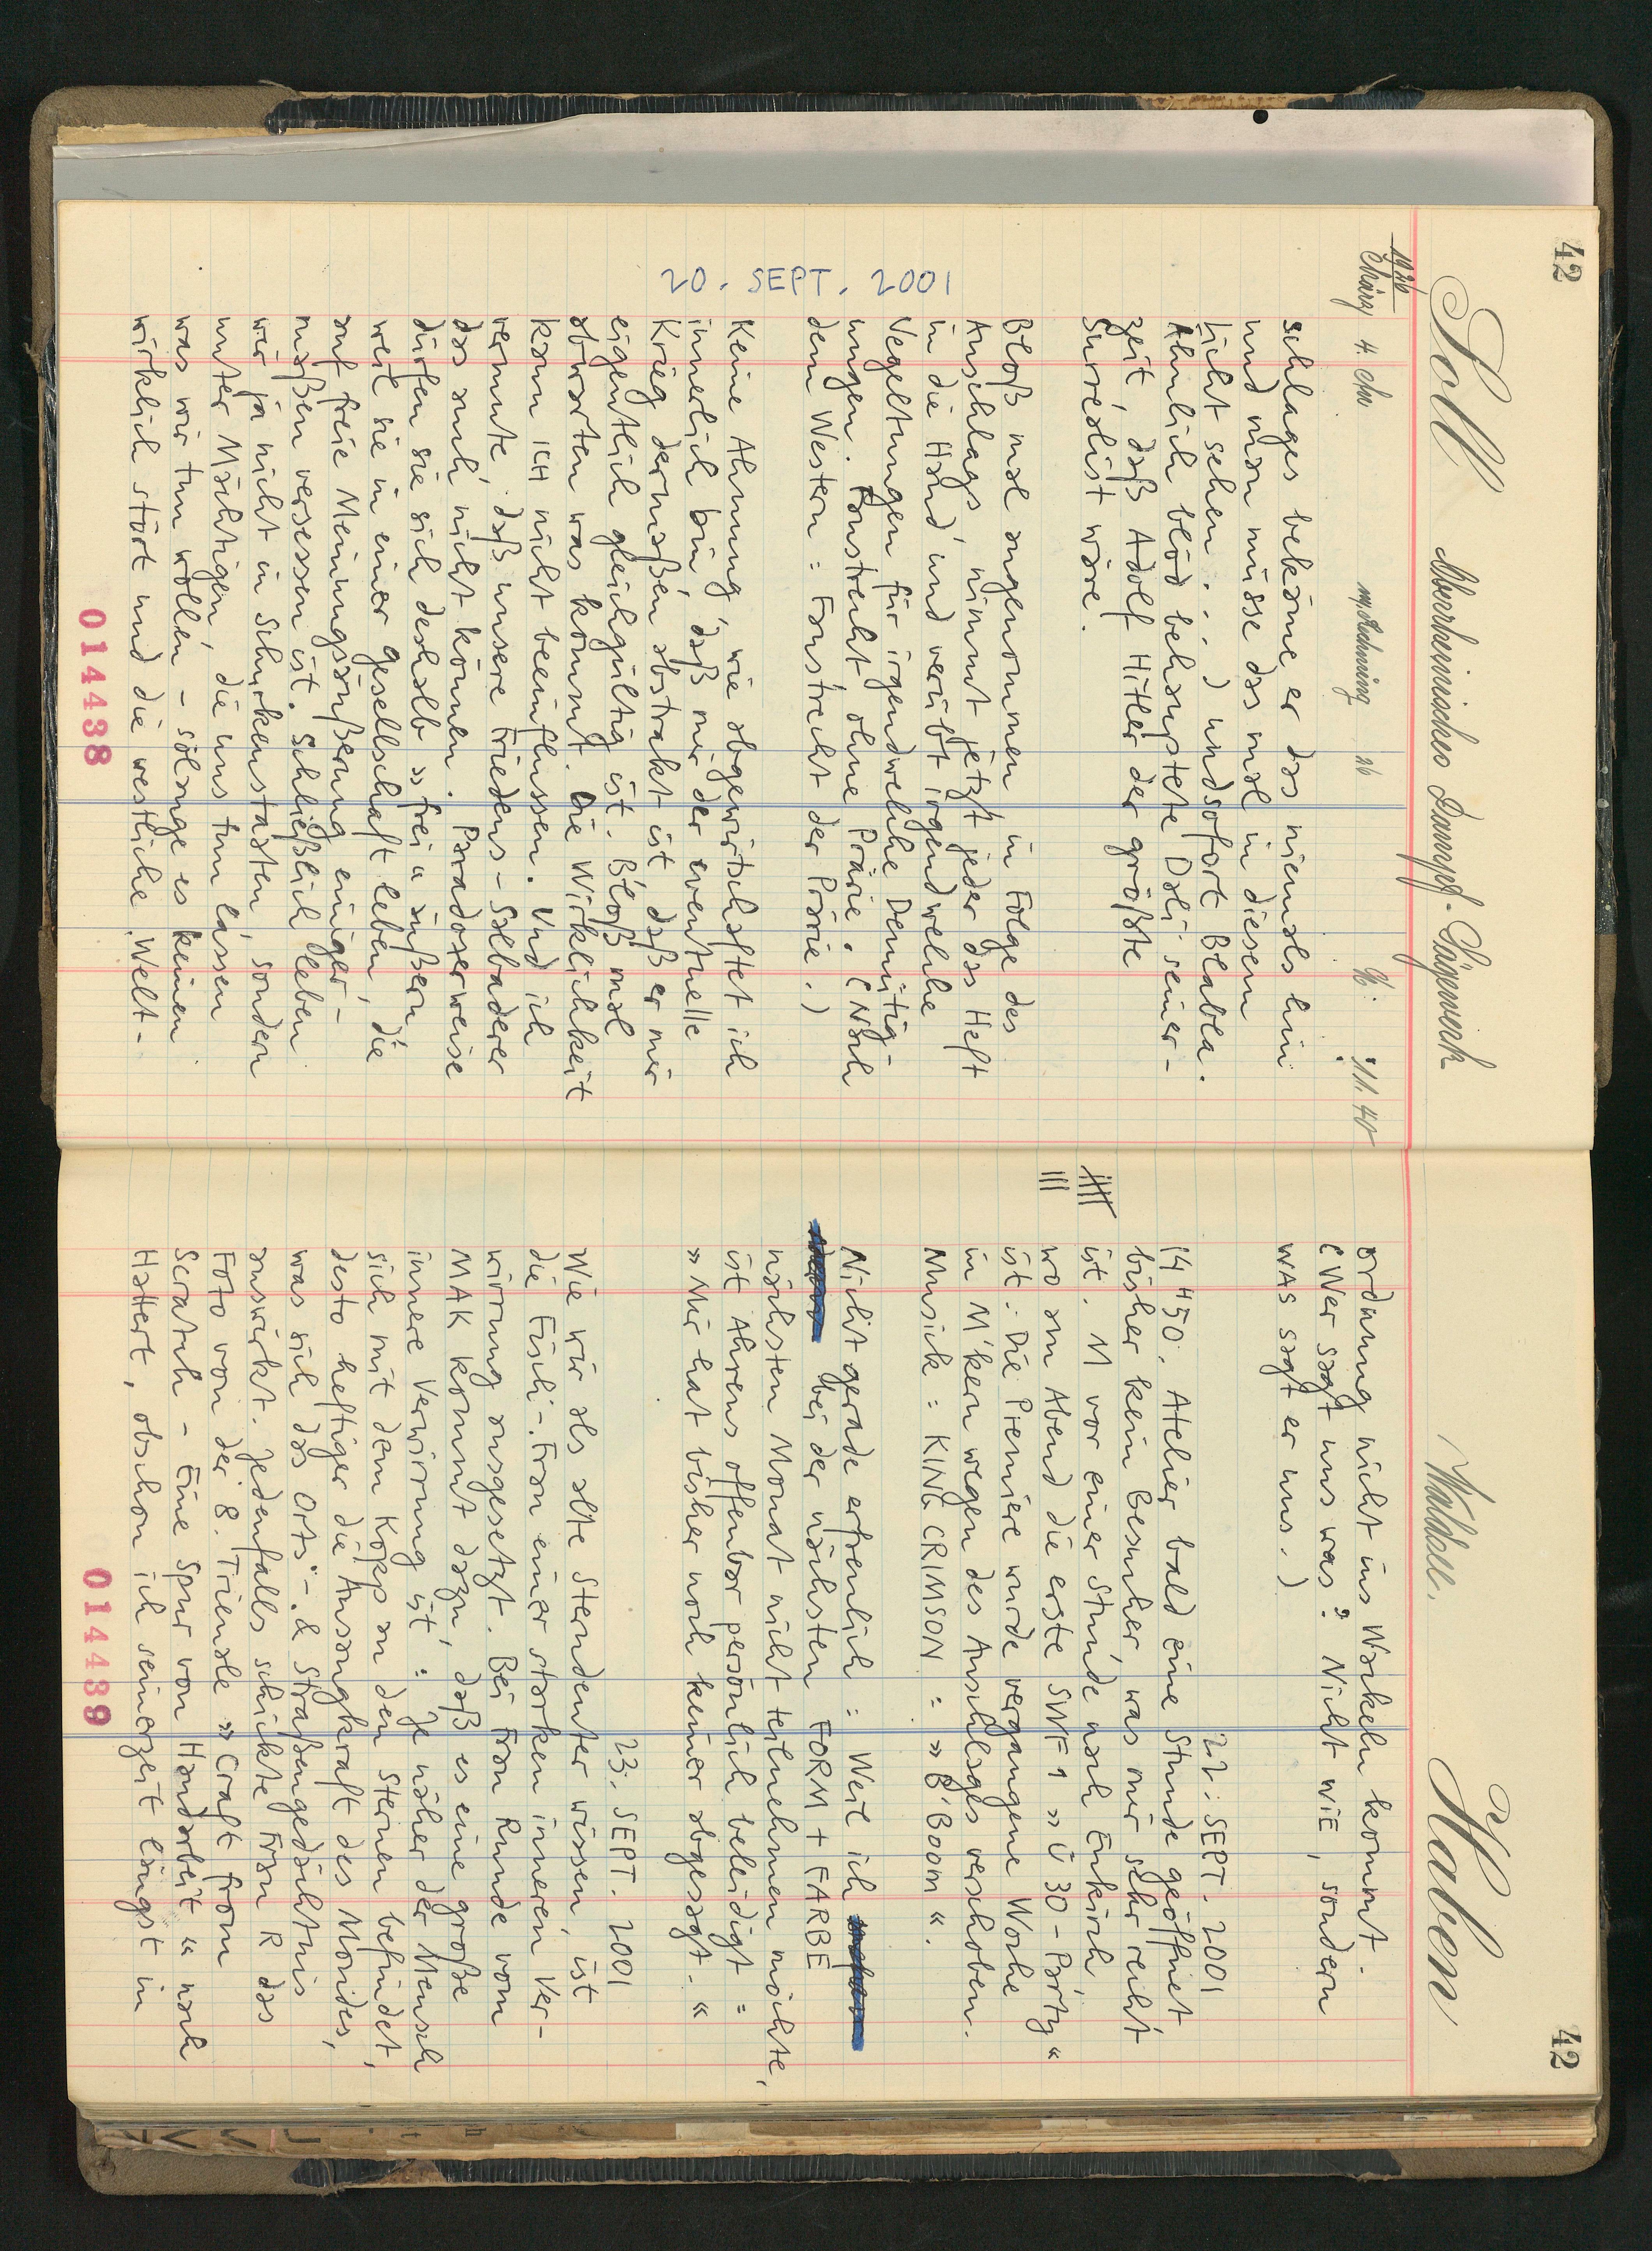 42
Soll
Oberrheinisches Dampf-Sägewerk
1926
März 4. An
Rechnung
11.40
schlages bekäme er das niemals hin
und man müsse das mal in diesem
Licht sehen...) undsofort Blabla.
Ähnlich blöd behauptete Dali seiner-
zeit, daß Adolf Hitler der größte
Surrealist wäre.
20. SEPT. 2001
Bloß mal angenommen in Folge des
Anschlags nimmt jetzt jeder das Heft
in die Hand und verübt irgendwelche
Vergeltungen für irgendwelche Demütig-
ungen. Faustrecht ohne Prärie. (Nach
dem Western: Faustrecht der Prärie.)
Keine Ahnung, wie abgewirtschaftet ich
innerlich bin, daß mir der eventuelle
Krieg dermaßen abstrakt ist, daß er mir
eigentlich gleichgültig ist. Bloß mal
abwarten was kommt. Die Wirklichkeit
kann ICH nicht beeinflussen. Und ich
vermute, daß unsere Friedens-Salbaderer
das auch nicht können. Paradoxerweise
dürfen sie sich deshalb »frei« äußern,
weil sie in einer Gesellschaft leben, die
auf freie Meinungsäußerung einiger-
maßen versessen ist. Schließlich leben
wir ja nicht in Schurkenstaaten, sondern
unter Mächtigen, die uns tun lassen
was wir tun wollen – solange es keinen
wirklich stört und die westliche Welt-
014438
42
Waldkll.
Haben
ordnung nicht ins Wackeln kommt.
(Wer sagt uns was? Nicht WIE, sondern
WAS sagt er uns.)
22. SEPT. 2001
14 450. Atelier bald eine Stunde geöffnet
bisher kein Besucher, was mir sehr recht
ist. M vor einer Stunde nach Enkirch,
wo am Abend die erste SWF 1 »Ü 30-Party«
ist. Die Premiere wurde vergangene Woche
in M'kern wegen des Anschlages verschoben.
Musick: KING CRIMSON: »B'Boom«.
Nicht gerade erfreulich: Weil ich
bei der nächsten FORM + FARBE
nächsten Monat nicht teilnehmen möchte,
ist Ahrens offenbar persönlich beleidigt:
»Mir hat bisher noch keiner abgesagt.«
23. SEPT. 2001
Wie wir als alte Sterndeuter wissen, ist
die Fisch-Frau einer starken inneren Ver-
wirrung ausgesetzt. Bei Frau Runde vom
MAK kommt dazu, daß es eine große
innere Verwirrung ist: Je näher der Mensch
sich mit dem Kopp an den Sternen befindet,
desto heftiger die Ansaugkraft des Mondes,
was sich das Orts- & Straßengedächtnis
auswirkt. Jedenfalls schickte Frau R das
Foto von der 8. Trienale »Craft from
Scratch – Eine Spur von Handarbeit« nach
Hattert, obschon ich seinerzeit längst in
014439